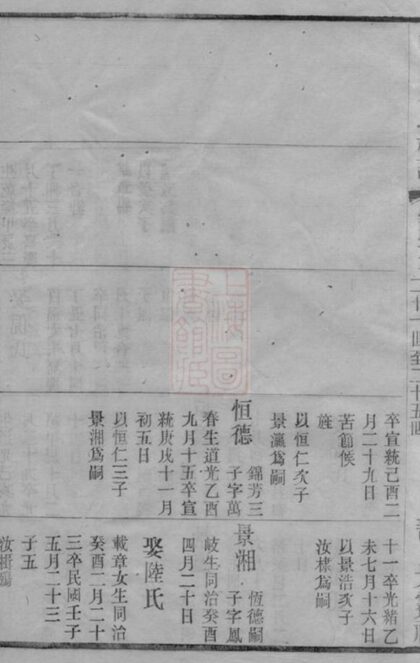 卒宣統己酉二
月二十九日
苦節候
旌
以恒仁次子
景瀛為嗣
恒德 錦芳三
子字萬
春生道光乙酉
九月十五卒宣
統庚戌十一月
初五日
以恒仁三子
景湘為嗣
十一卒光緒乙
未七月十六日
以景浩次子
汝棣為嗣
景湘 恆德嗣
子字鳳
岐生同治癸酉
四月二十日
娶陸氏
載章女生同治
癸酉二月二十
三卒民國壬子
五月二十三
子五
上海圖
書館藏